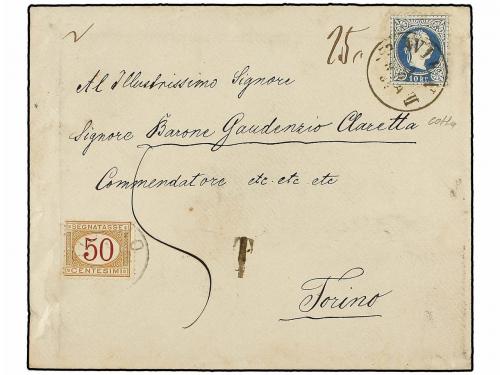 25
10 KR
WIEN
Al Illustrissimo Signore
Signore Barone Gaudenzio Claretta
Commendatore etc etc etc
SEGNATASSE
50
CENTESIMI
T
Torino